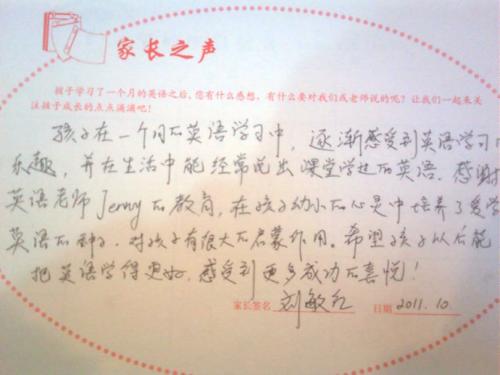 家长之声
孩子学习了一个月的英语之后，您有什么感想，有什么要对我们或老师说的呢？让我们一起来关
注孩子成长的点点滴滴吧！
孩子在一个月的英语学习中，逐渐感受到英语学习的
乐趣，并在生活中能经常说出课堂学过的英语。感谢
英语老师Jenny的教育，在孩子幼小的心灵中培养了爱学
英语的种子，对孩子有很大的启蒙作用。希望孩子以后能
把英语学得更好，感受到更多成功的喜悦！
家长签名 刘敏红 日期 2011.10.